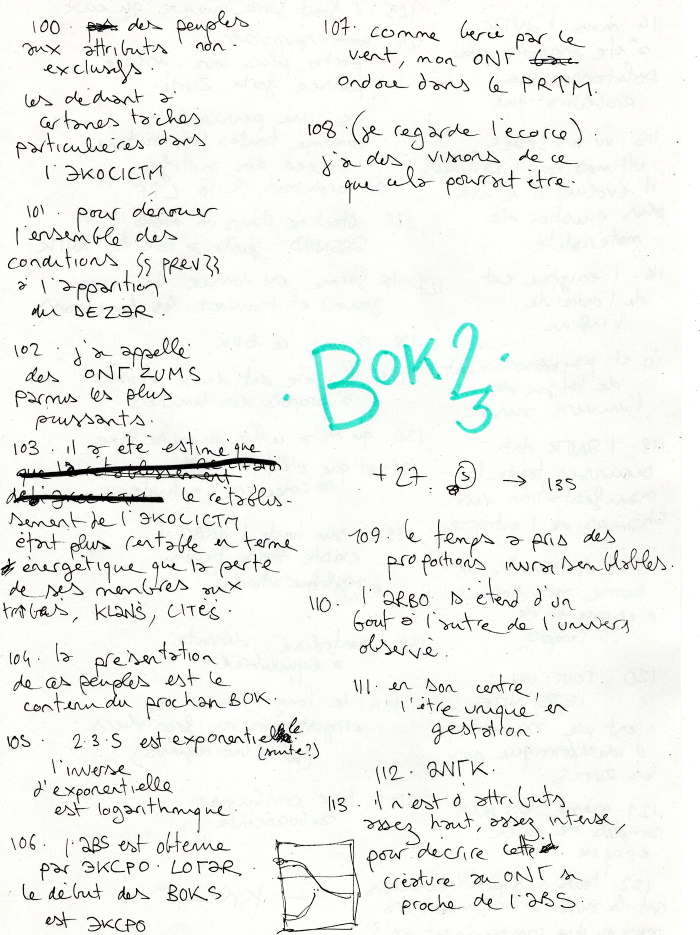 100. des peuples
aux attributs non-
exclusifs.
les dédiant à
certaines tâches
particulières dans
l'ЭKOCICTM
101. pour dénouer
l'ensemble des
conditions {{ PREV }}
à l'apparition
du DEZƏR.
102. j'ai appellé
des ONГ ZUMS
parmis les plus
puissants.
103. il a été estimé que
le rétablis-
sement de l'ЭKOCICTM
étant plus rentable en terme
énergétique que la perte
de ses membres aux
TRIBAS, KLANS, CITÉS.
104. la présentation
de ces peuples est le
contenu du prochain BOK.
105. 2.3.5 est exponentielle
(suite?)
l'inverse
d'exponentielle
est logarithmique.
106. l'ƏBS est obtenue
par ЭKCPO. LOГƏR
le début des BOKS
est ЭKCPO
107. comme bercé par le
vent, mon ONГ
ondoie dans le PRTM.
108. (je regarde l'écorce).
j'ai des visions de ce
que cela pourrait être.
BOK 2/3
+27 . (S) → 135
109. le temps a pris des
proportions invraisemblables.
110. l'ƏRBO s'étend d'un
bout à l'autre de l'univers
observé.
111. en son centre,
l'être unique en
gestation.
112. ƏNГK.
113. il n'est d'attributs
assez haut, assez intense
pour décrire cette
créature au ONГ si
proche de l'ƏBS.